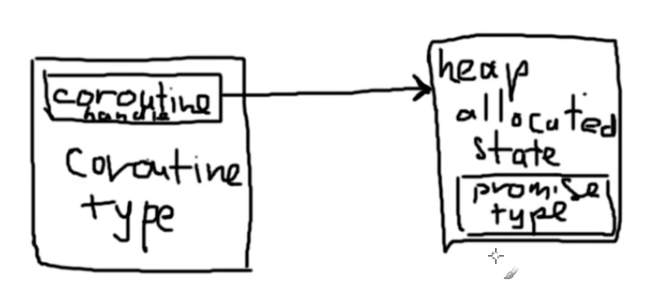 coroutine
handle
Coroutine
type
heap
allocated
state
promise
type